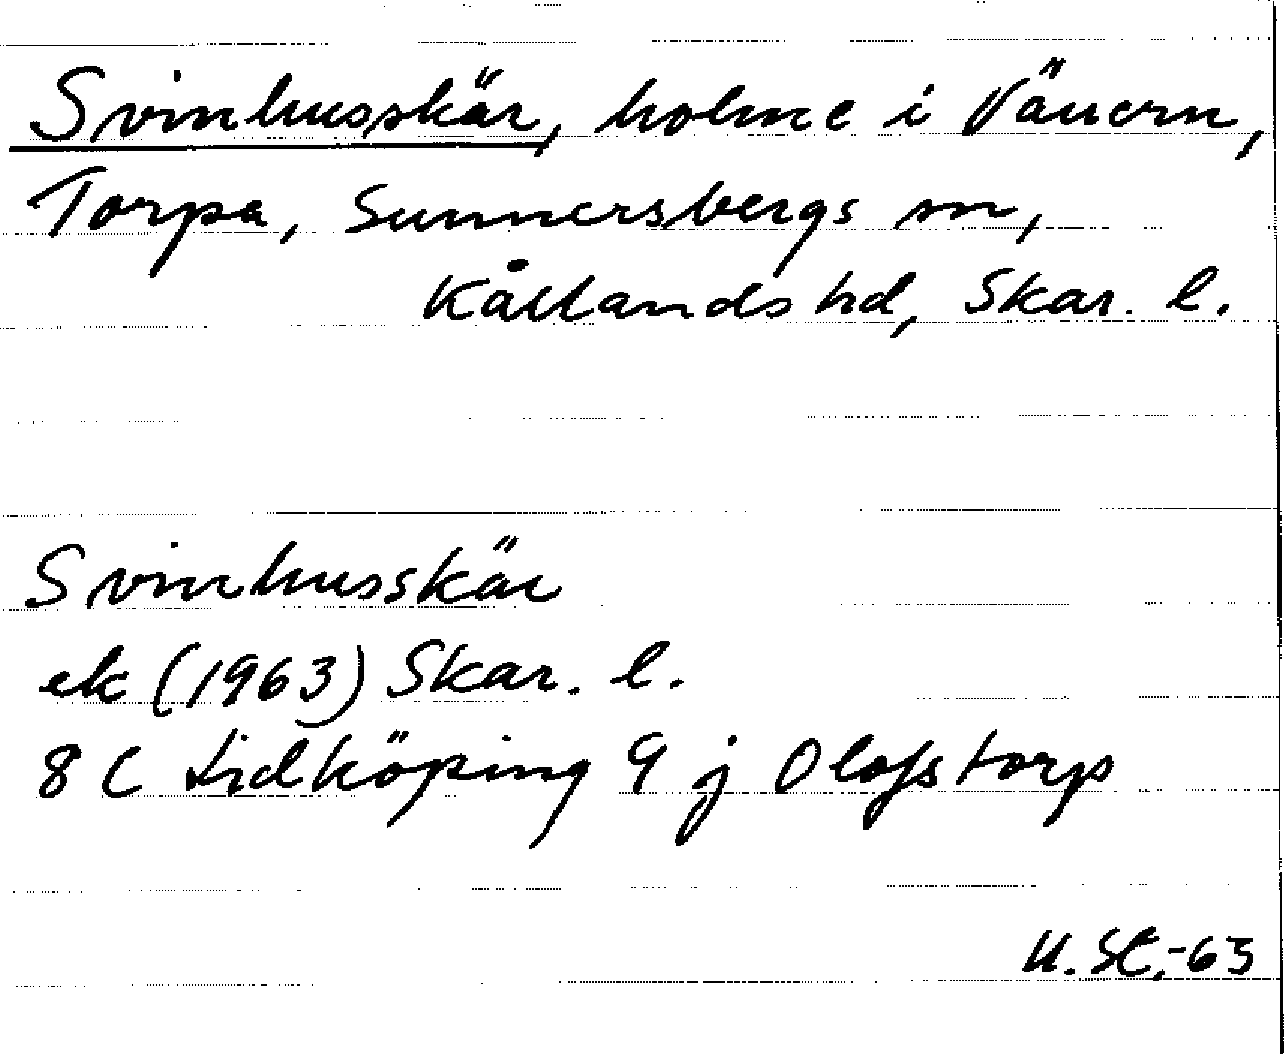 Svinhusskär, holme i Vänern,
Torpa, Sunnersbergs sn,
Kållands hd, Skar. l.
Svinhusskär
ek (1963) Skar. l.
8 C Lidköping 9 j Olofstorp
-65